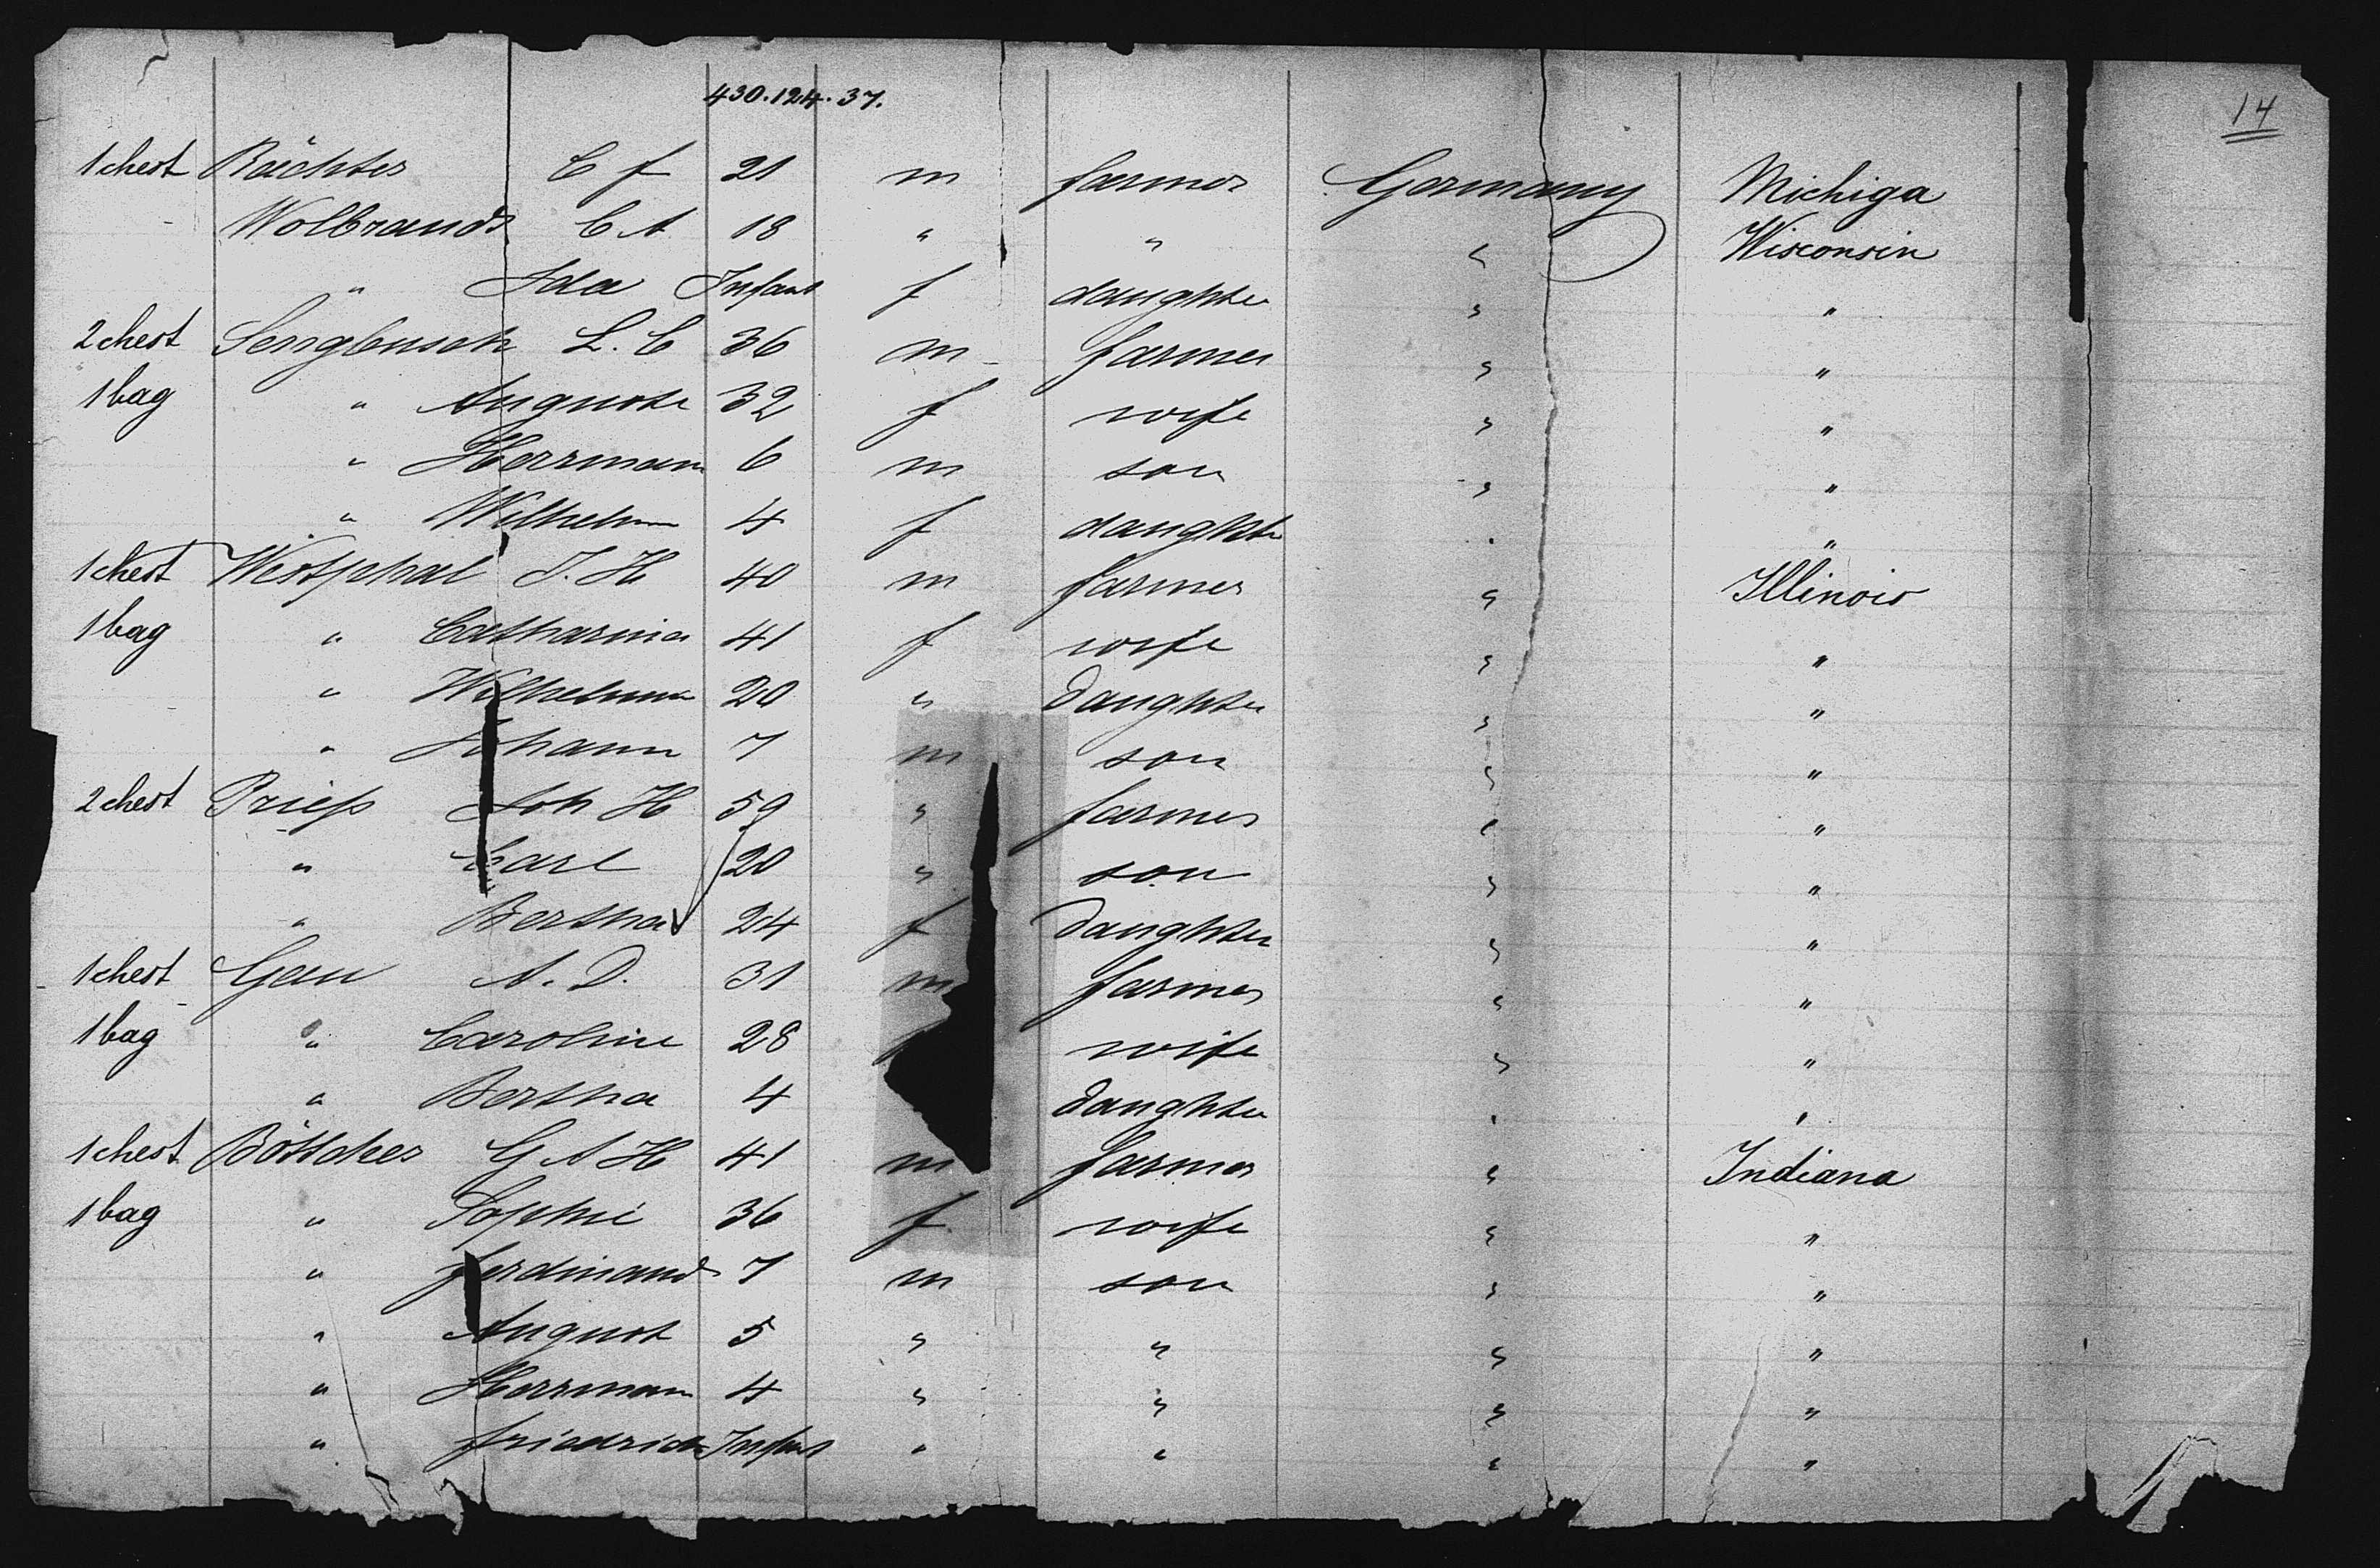 430. 124. 37.
14
1 chest Bächter C f 21 m farmer Germany Michiga
Wolbrandt C A 18 " " " Wisconsin
" Ida Infant f daughter " "
2 chest Sengbusch L. C 36 m farmer " "
1 bag " Auguste 32 f wife " "
" Herrmann 6 m son " "
" Wilhelm 4 f daughter " "
1 chest Westphal J. H 40 m farmer " Illinois
1 bag " Catharina 41 f wife " "
" Wilhelmine 20 " daughter " "
" Johann 7 m son " "
2 chest Priess Joh H 59 " farmer " "
" Carl 20 " son " "
" Bertha 24 f daughter " "
1 chest Gau A. D. 31 m farmer " "
1 bag " Caroline 28 wife " "
" Bertha 4 daughter " "
1 chest Böttcher G A H 41 m farmer " Indiana
1 bag " Sophie 36 f wife " "
" Ferdinand 7 m son " "
" August 5 " " " "
" Herrmann 4 " " " "
" Friedrich Infant " " " "